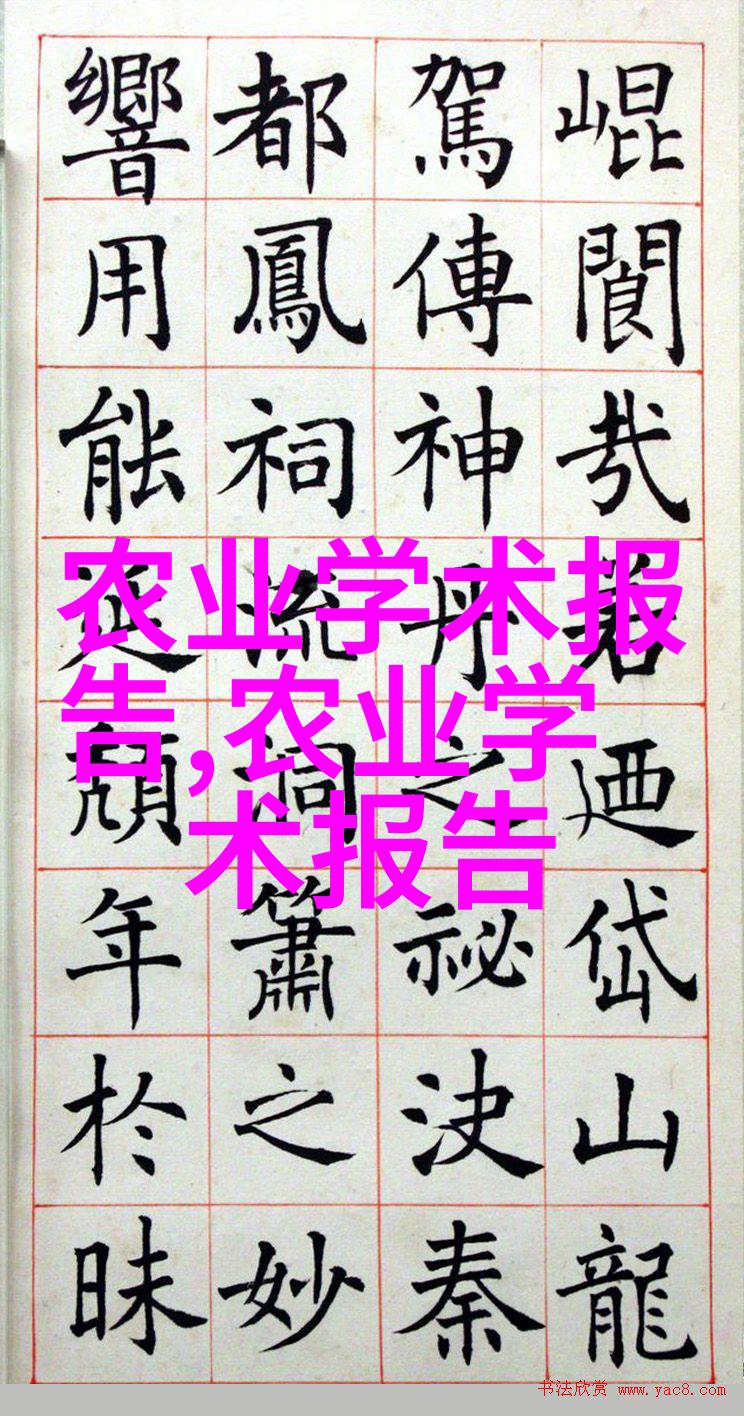 崐閬哉若迺岱山龍
駕傳神丹之祕決秦
都鳳祠流洞簫之妙
響用能延頹年於昧
农业学术报
告,农业学
术报告
书法欣赏 www.yac8.com